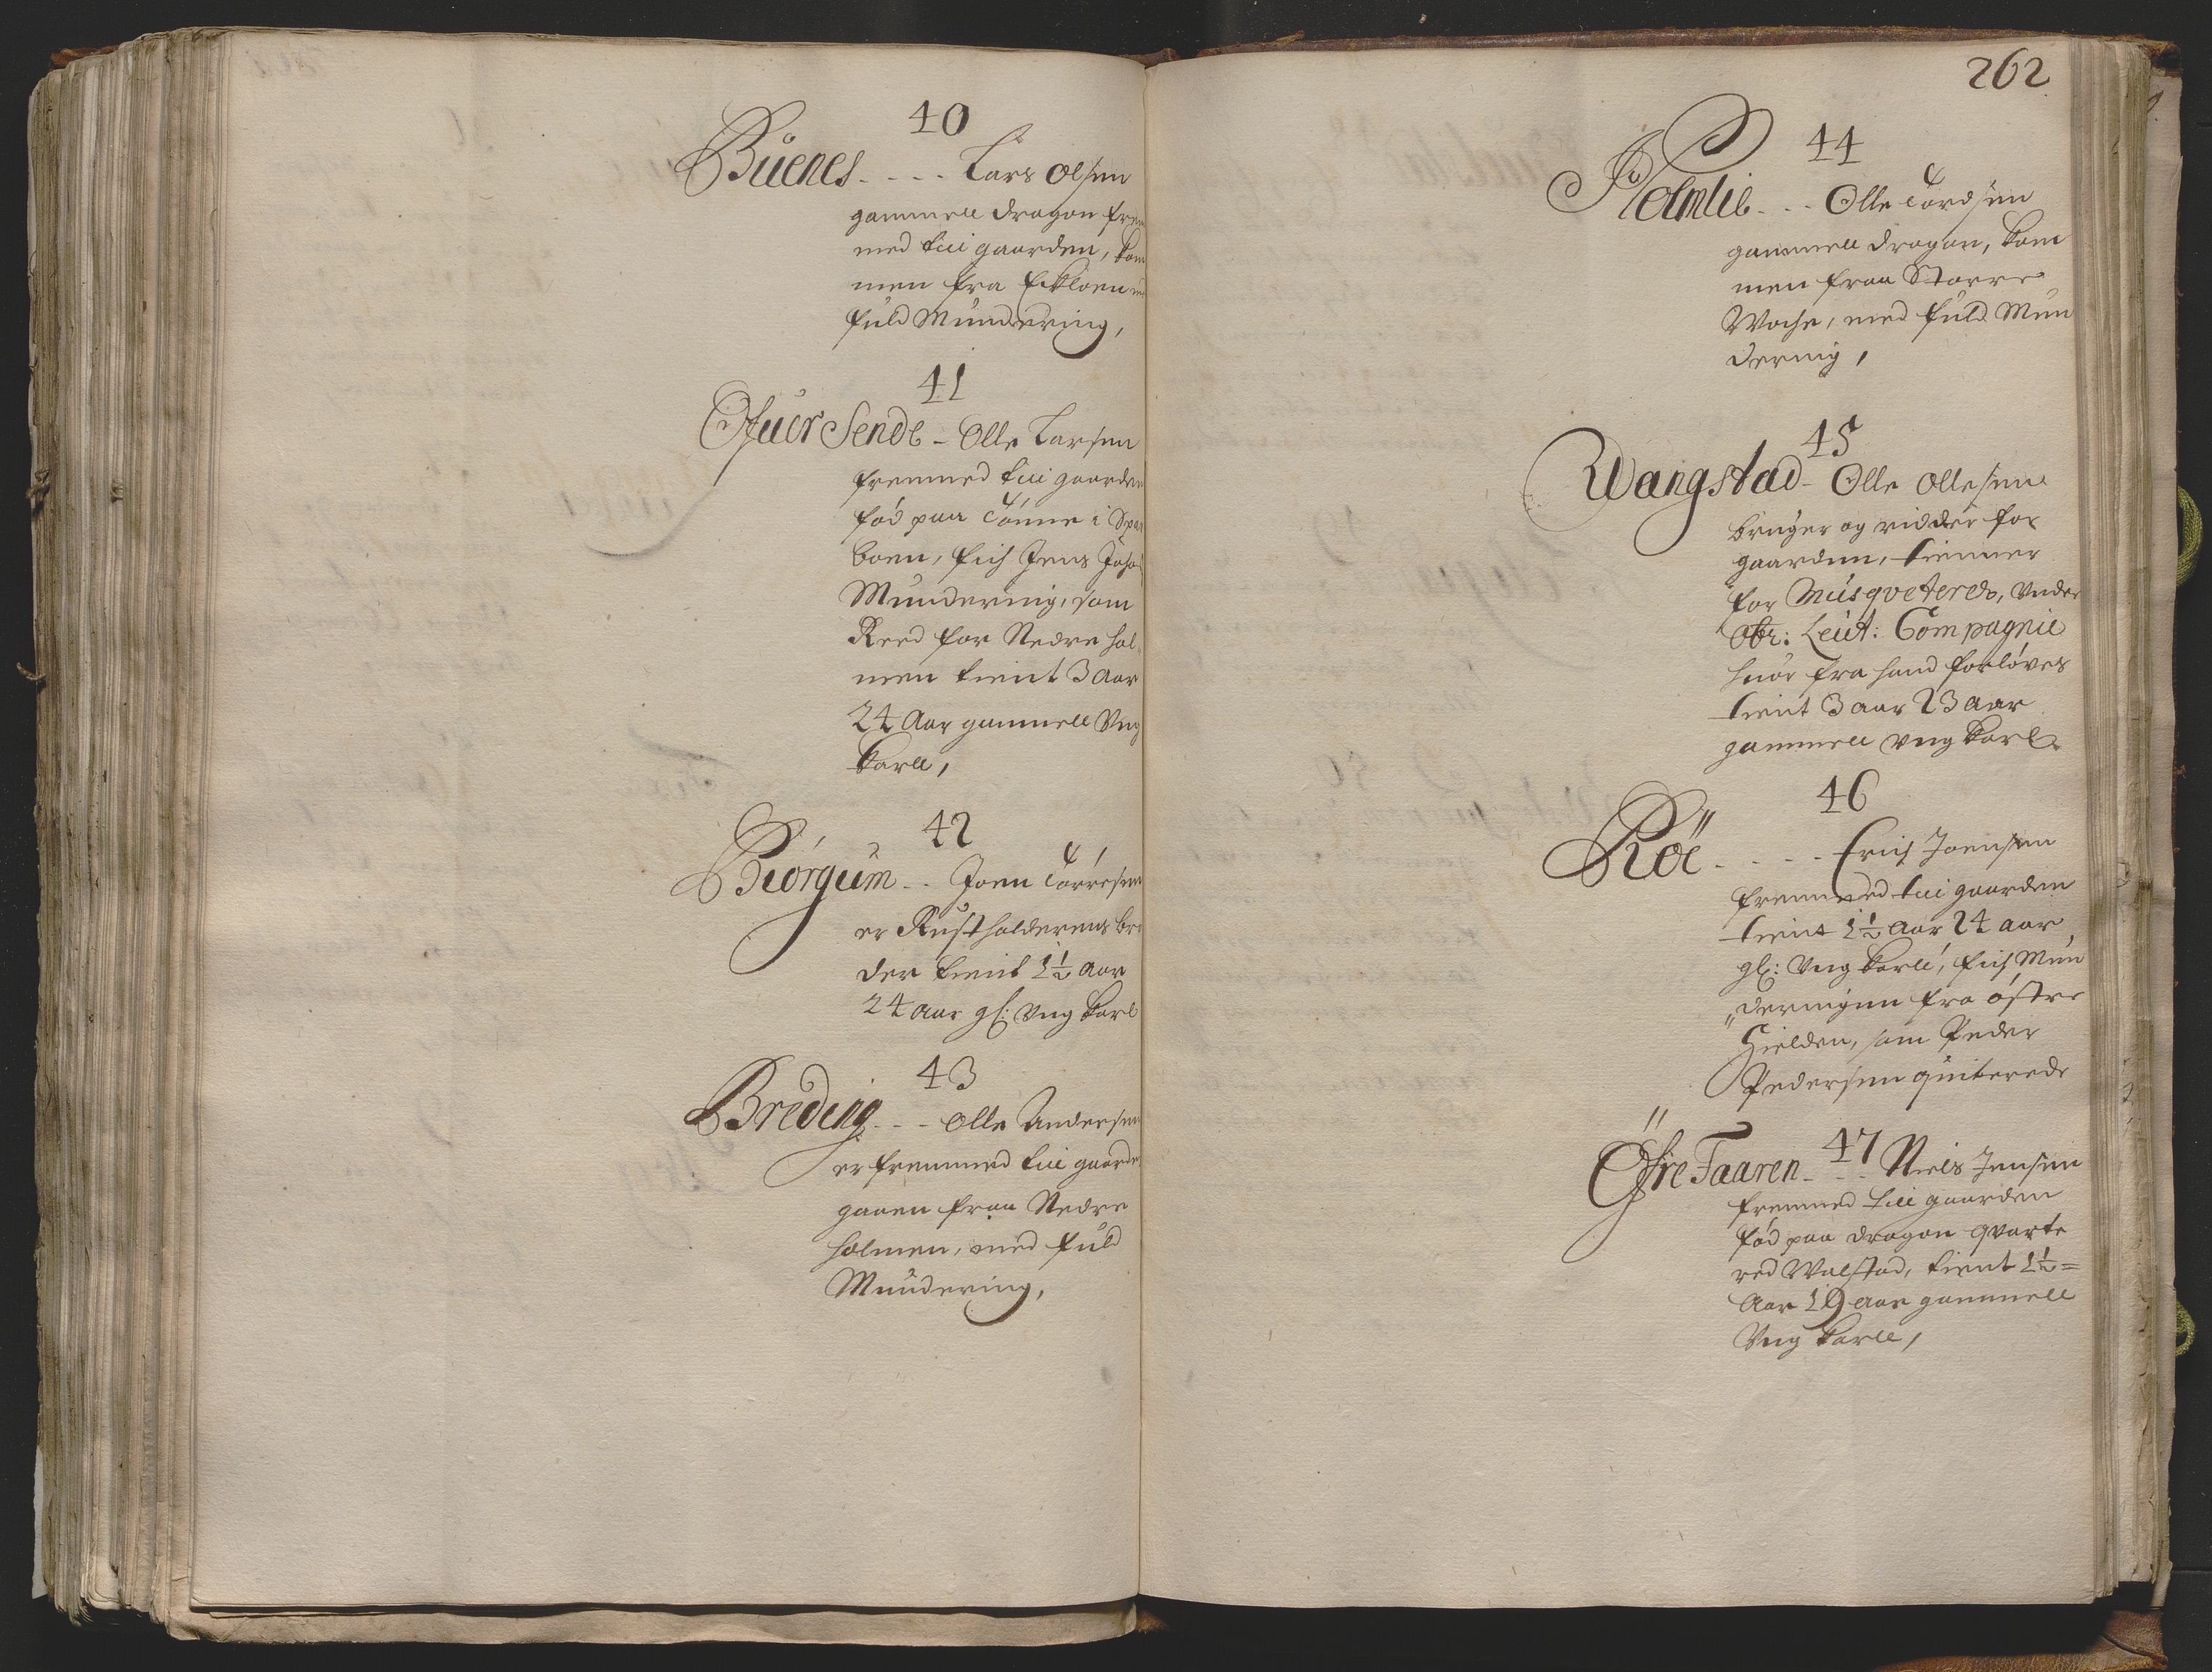 40
Büenes - - - - Lars Olsen
gammell dragon frem
med till gaarden, kom
men fra Eckloen
fuld Mundering,
41
Ofuer Sende - Olle Larsen
fremmed till gaarden
fød paa Tønne i Spar
boen, fich Jens
Mundering, som
Reed for Nedre hol
men tient 3 Aar
24 Aar gammell Vng
karll,
42
Biørgüm - - Joen Tørresen
er Rustholderens bro
der tient 1½ Aar
24 aar gl: Vng Karl
43
Breding - - - Olle Andersen
er fremmed till gaarde
gaaen fraa Nedre
holmen, med fuld
Mundering,
262
44
Holmlie - - - Olle Tordsen
gammell dragon, kom
men fraa Storre
Wohe, med fuld Mun
dering,
45
Wangstad - Olle Ollesen
bruger og ridder for
gaarden, tienner
for Müsqveterer, Vnder
Obr: Leüt: Compagnie
huor fra hand forløves
tient 3 aar 23 aar
gammell Vng Karl
46
Röe - - - - Erich Joensen
fremmed till gaarden
tient 1½ Aar 24 aar
gl: Vng karll, fich Mun
deringen fra østre
Hielden, som Peder
Pedersen qviterede
47
Öfre Taaren - - - Niels Jensen
fremmed till gaarden
fød paa dragon qvarte
red Walstad, tient 1½=
Aar 19 aar gammell
Vng karll,